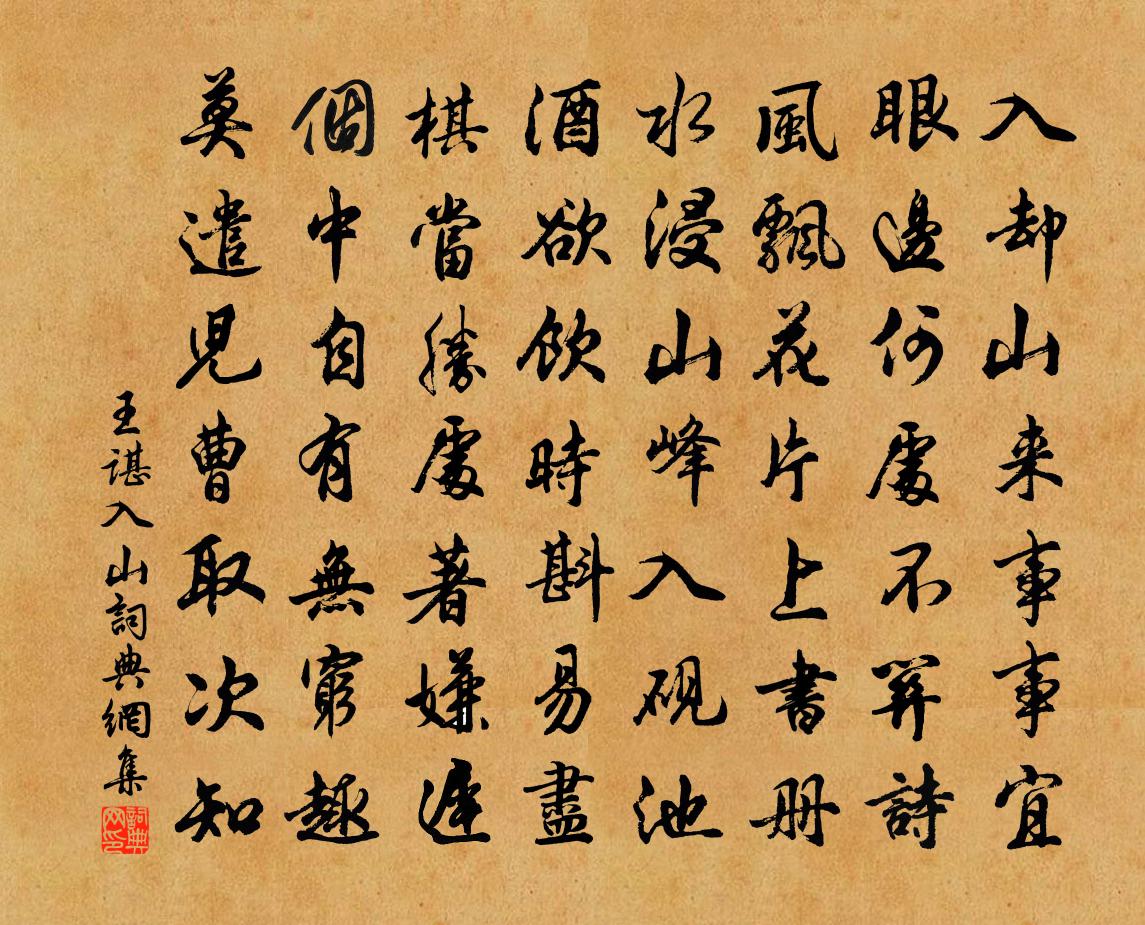 入却山来事事宜
眼邊何處不笄詩
風飄花片上書册
水浸山峰入硯池
酒欲飲時斟易盡
棋當勝處著嫌遲
個中自有無窮趣
莫遣児曹取次知
王諶入山詞典網集
詞典网印